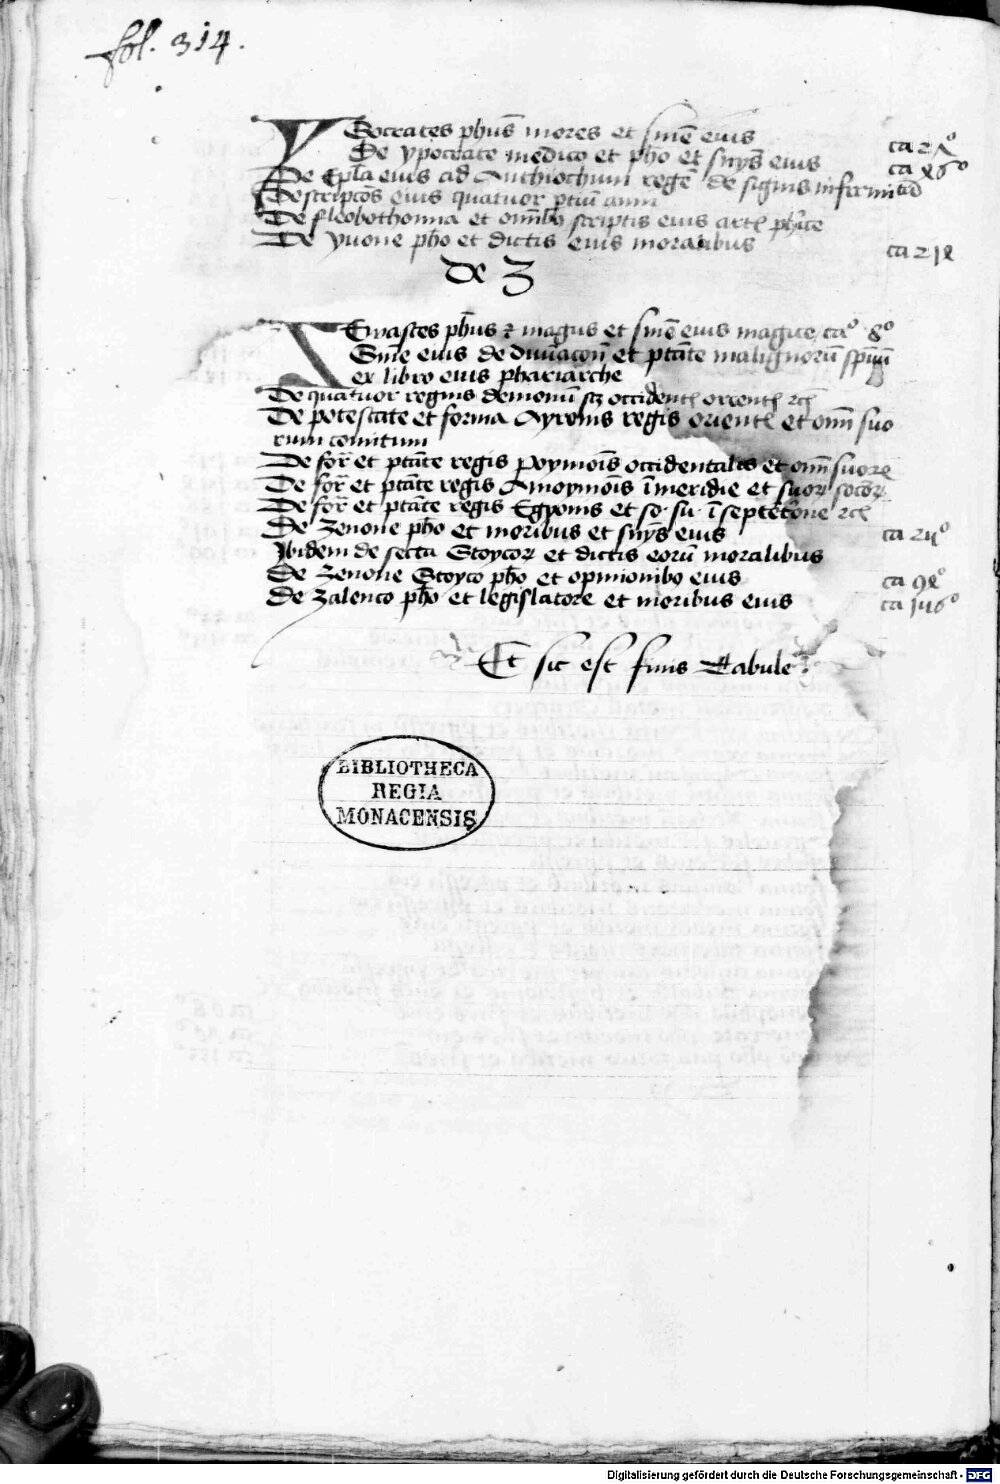 fol. 314.
YSocrates phus mores et sine eius
De ypocrate medico et pho et sinys eius ca 2
De Epla eius ad Anthiochum rege de signis infirmitad
Descripcos eius quatuor ptiu anni
De fleobothomia et omibo scriptis eius
De yuone pho et dictis eius moralibus
de Z
phus et magus et sine eius magice ca° 8°
Sine eius de diuinacon et ptate malignoru spirituu
ex libro eius phariarche
De quatuor regnis demonum occident
De potestate et forma Ayronis regis orient et omi suo
rum comitum
De for et ptate regis Poymois occidentalis et omi suore
De for et ptate regis Amoymois i meridie et suor socor
De for et ptate regis Egyonis et so su i septetrone
De Zenone pho et moribus et sinys eius
Ibidem de secta Stoycor et dictis eoru moralibus
De Zenone Stoyco pho et opinionibo eius
De Zalenco pho et legislatore et moribus eius
Et sic est finis Tabule
BIBLIOTHECA
REGIA
MONACENSIS
Digitalisierung gefördert durch die Deutsche Forschungsgemeinschaft - DFG